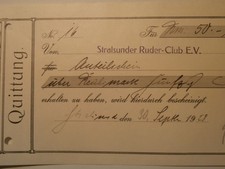 Quittung.
No 16 Für Rm 50.-
Von Stralsunder Ruder-Club E.V.
Anteilschein
über Reichsmark Fünfzig
erhalten zu haben, wird hierdurch bescheinigt.
Stralsund den Septbr 1928